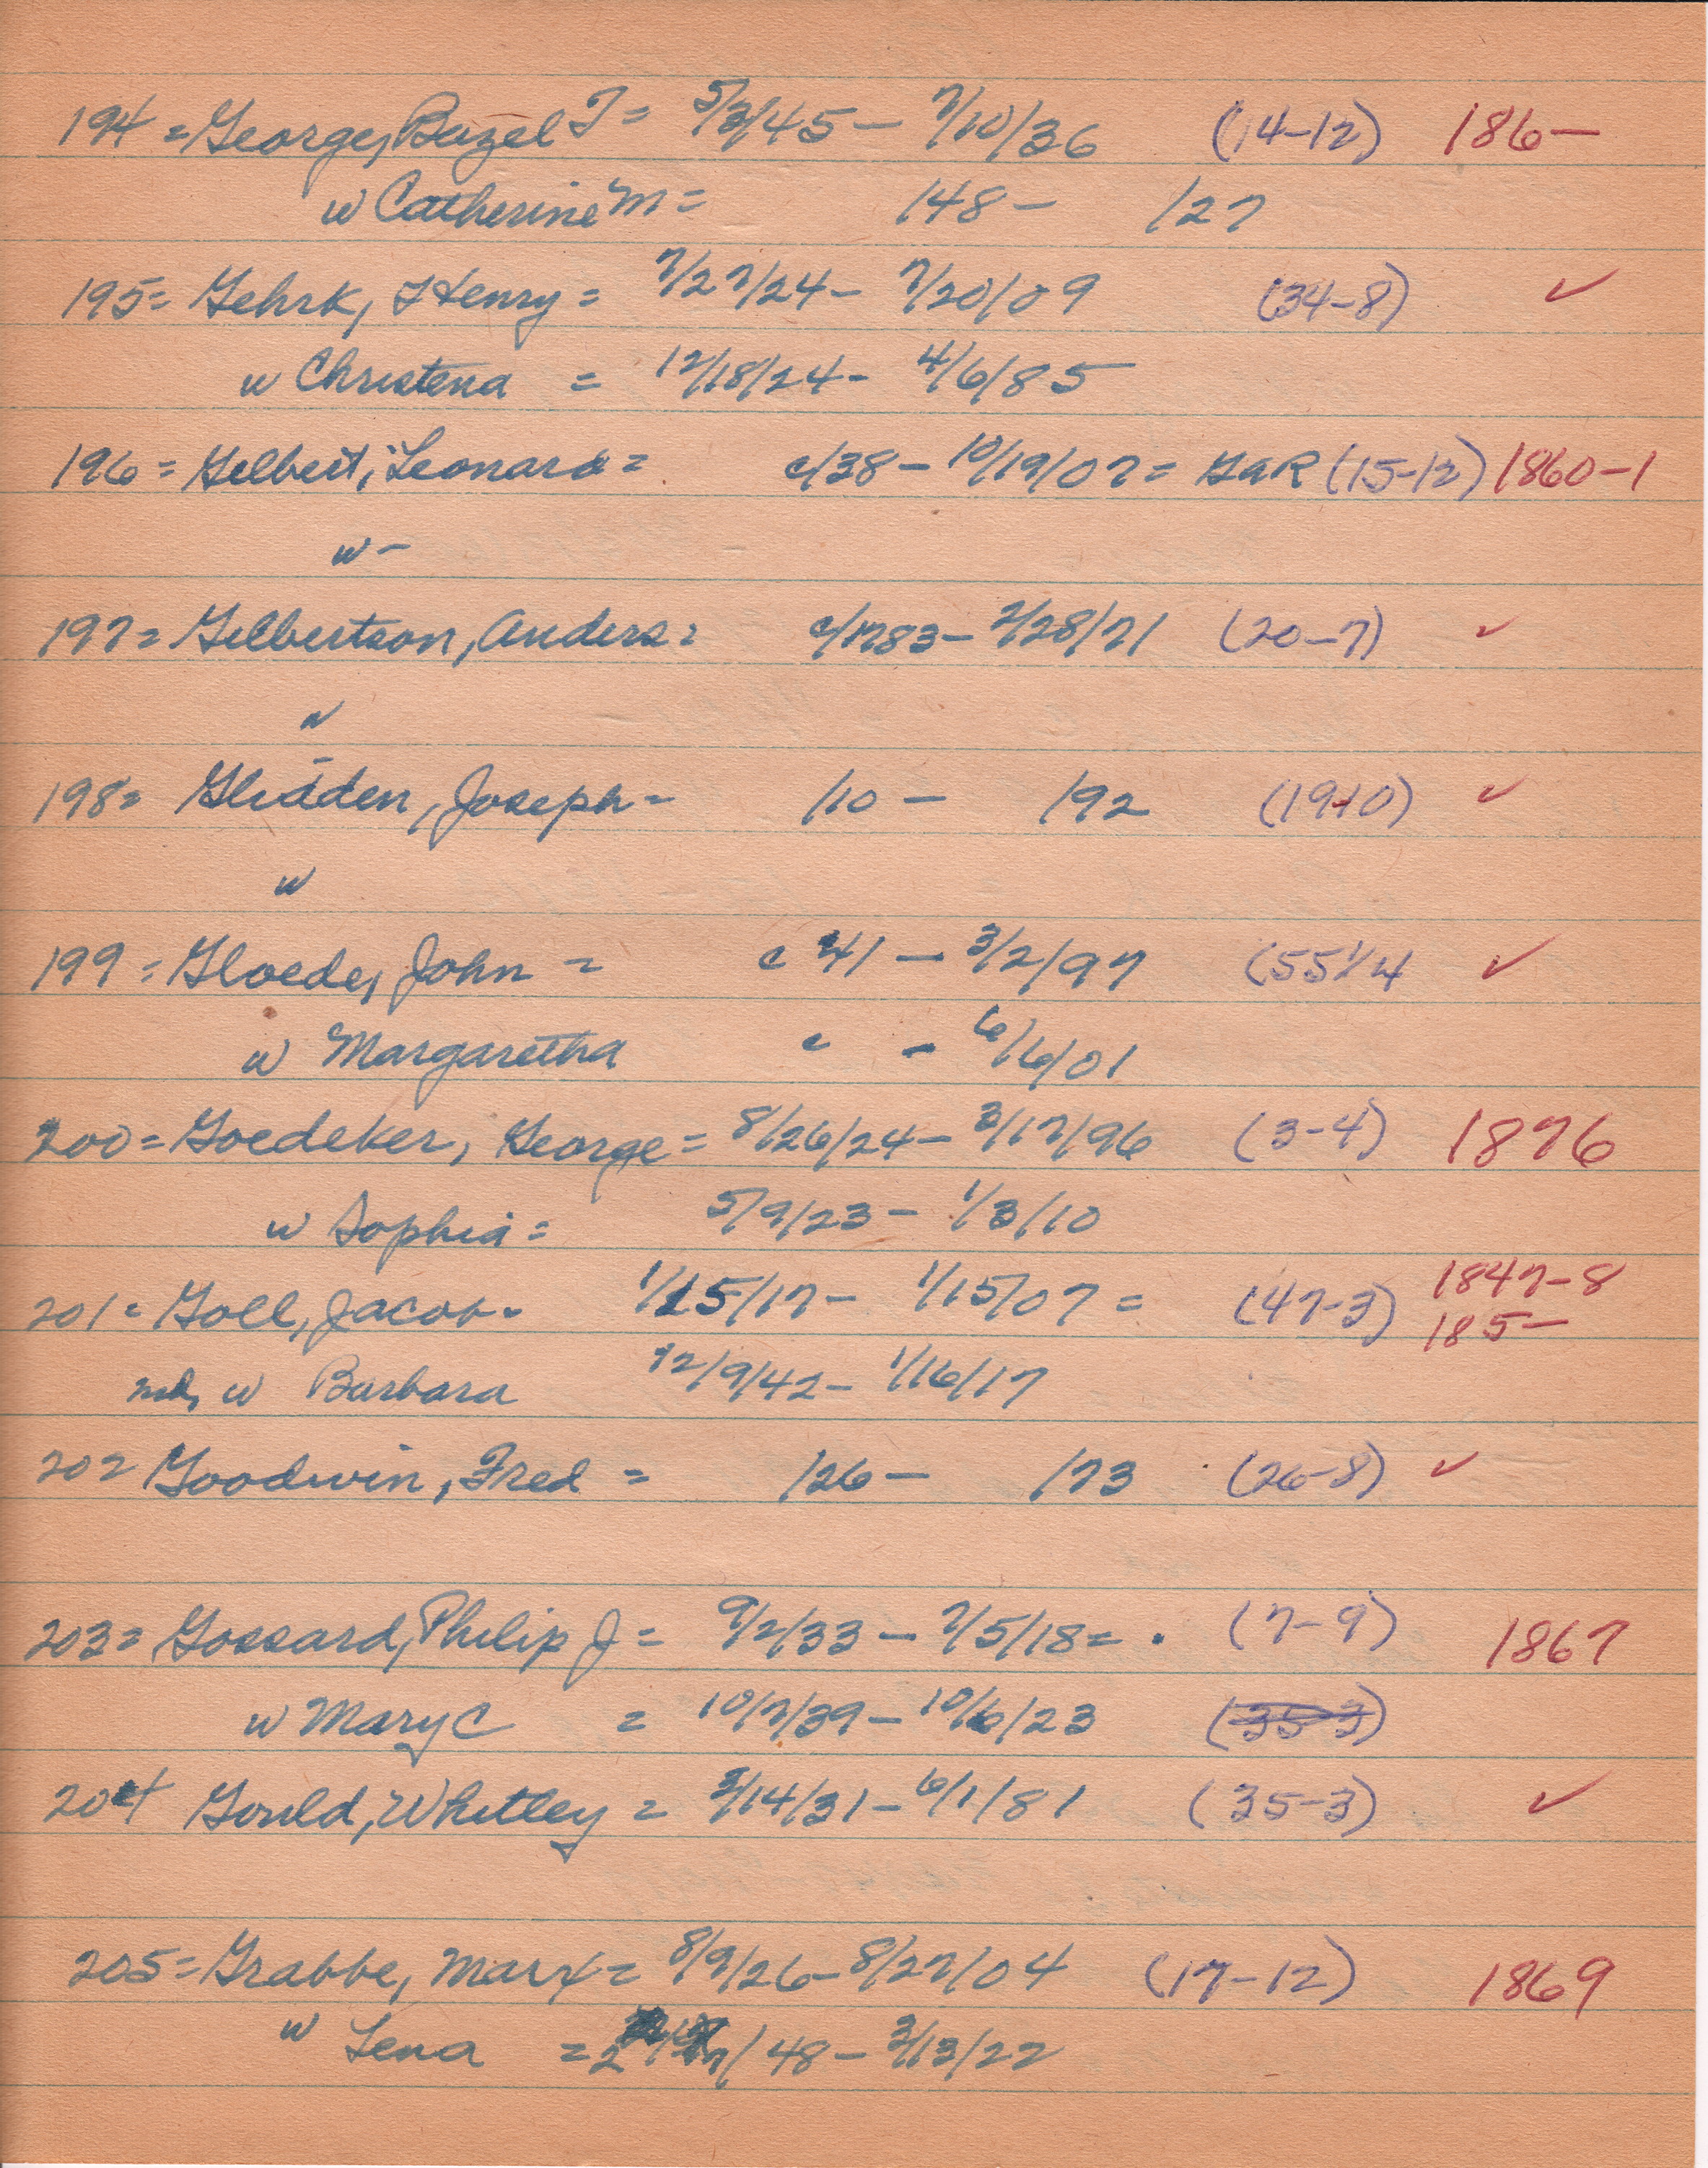 194 = George, Bazel T = 5/3/45 - 7/10/36 (14-12) 186-
w Catherine M = 148 - 127
195 = Gehrk, Henry = 7/27/24 - 7/20/09 (34-8) ✓
w Christena = 12/18/24 - 4/6/85
196 = Gelbert, Leonard = c/38 - 10/19/07 = GAR (15-12) 1860-1
w -
197 = Gelbertson, Anders = c/1783 - 2/28/71 (20-7) ✓
w
198 = Glidden, Joseph - /10 - /92 (19-10) ✓
w
199 = Gloede, John = c 41 - 3/2/97 (55 1/4 ✓
w Margaretha c - 6/6/01
200 = Goedeker, George = 8/26/24 - 3/17/96 (3-4) 1876
w Sophia = 5/9/23 - 1/3/10
201 = Goll, Jacob = 1/15/17 - 1/15/07 = (47-3) 1847-8
185-
2nd, w Barbara 12/9/42 - 1/16/17
202 Goodwin, Fred = /26 - /73 (26-8) ✓
203 = Gossard, Philip J = 9/2/33 - 7/5/18 = . (7-9) 1867
w Mary C = 10/7/39 - 10/6/23 (35-3)
204 Gould, Whitley = 3/14/31 - 6/1/81 (35-3) ✓
205 = Grabbe, Marx = 8/9/26 - 8/27/04 (17-12) 1869
w Lena = /48 - 3/13/22